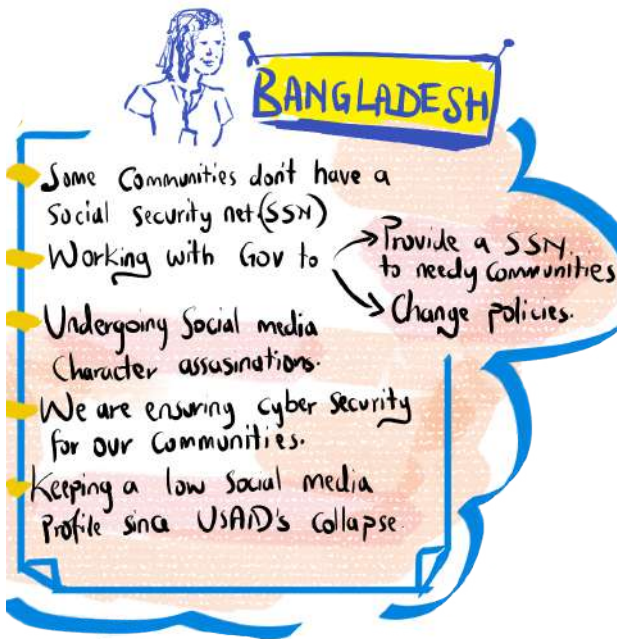 BANGLADESH
Some Communities don't have a
Social Security net (SSN)
Working with Gov to
Provide a SSN
to needy communities
Change policies.
Undergoing Social media
Character assusinations.
We are ensuring cyber security
for our communities.
Keeping a low Social media
Profile since USAID's collapse